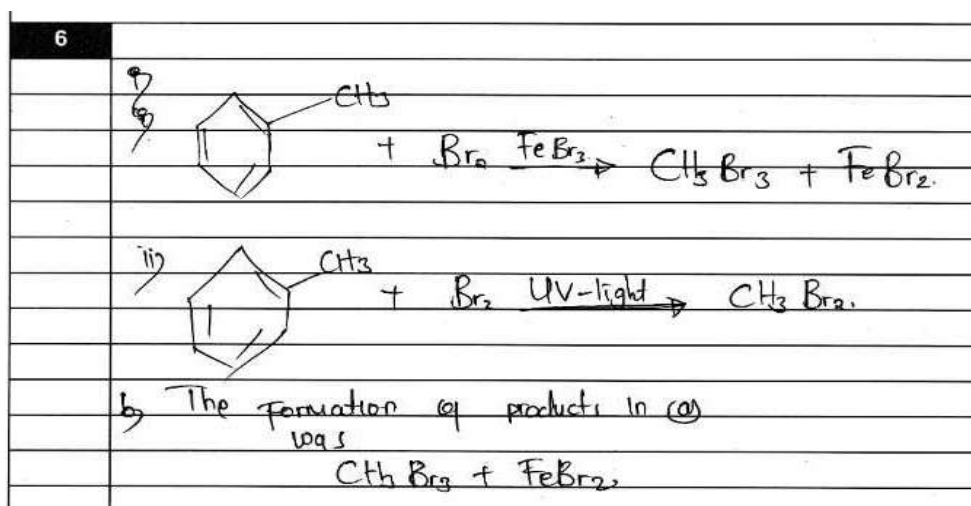 6
a)
i) CH3
+ Br2 FeBr3 → CH3Br3 + FeBr2.
ii) CH3
+ Br2 UV-light → CH3Br2.
b) The Formation of products in (a)
was
CH3Br3 + FeBr2.